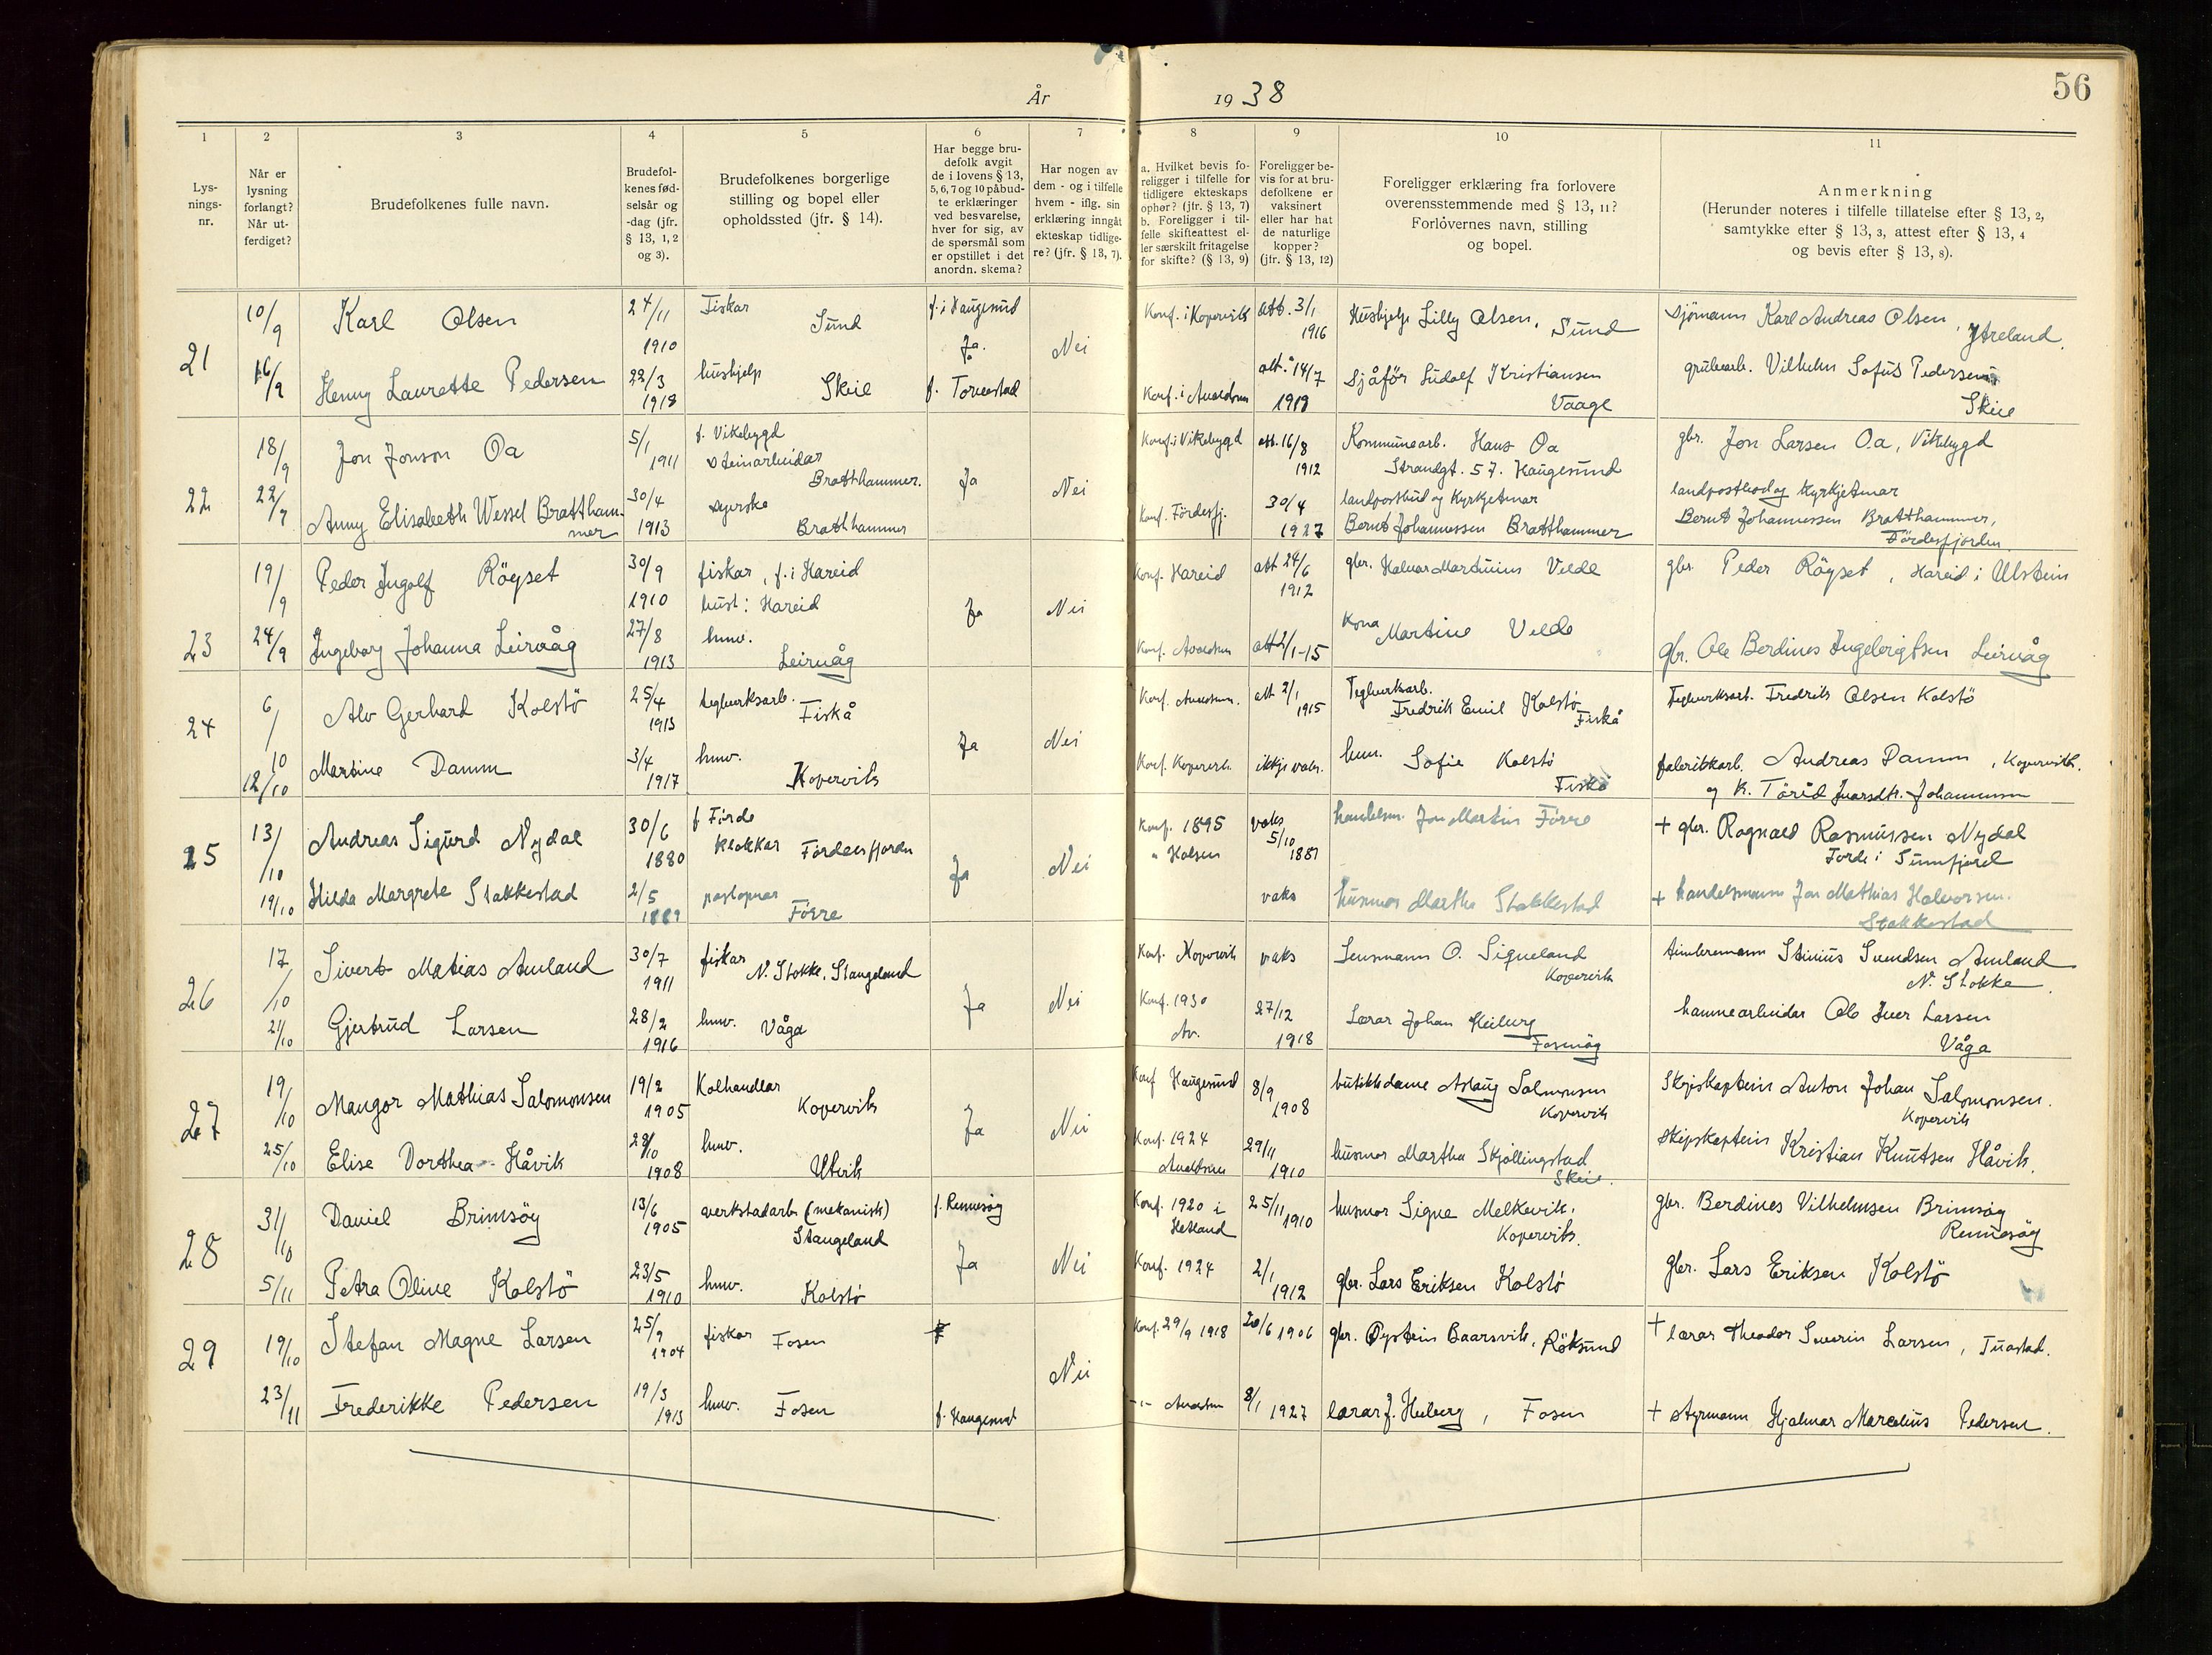 År 1938
56
1
2
3
4
5
6
7
8
9
10
11
Lys-
nings-
nr.
Når er
lysning
forlangt?
Når ut-
ferdiget?
Brudefolkenes fulle navn.
Brudefol-
kenes fød-
selsår og
-dag (jfr.
§ 13, 1, 2
og 3).
Brudefolkenes borgerlige
stilling og bopel eller
opholdssted (jfr. § 14).
Har begge bru-
defolk avgit
de i lovens § 13,
5, 6, 7 og 10 påbud-
te erklæringer
ved besvarelse,
hver for sig, av
de spørsmål som
er opstillet i det
anordn. skema?
Har nogen av
dem - og i tilfelle
hvem - iflg. sin
erklæring inngåt
ekteskap tidlige-
re? (jfr. § 13, 7).
a. Hvilket bevis fo-
religger i tilfelle for
tidligere ekteskaps
ophør? (jfr. § 13, 7)
b. Foreligger i til-
felle skifteattest el-
ler særskilt fritagelse
for skifte? (§ 13, 9)
Foreligger be-
vis for at bru-
defolkene er
vaksinert
eller har hat
de naturlige
kopper?
(jfr. § 13, 12)
Foreligger erklæring fra forlovere
overensstemmende med § 13, 11?
Forlovernes navn, stilling
og bopel.
Anmerkning
(Herunder noteres i tilfelle tillatelse efter § 13, 2,
samtykke efter § 13, 3, attest efter § 13, 4
og bevis efter § 13, 8).
21
10/9 Karl Olsen 24/11 1910 Fiskar Sund f. i Haugesund Ja. Nei Konf. i Kopervik att. 3/1 1916 Hushjelp Lilly Olsen, Sund Sjömann Karl Andreas Olsen, Ytreland.
16/9 Henny Laurette Pedersen 22/3 1918 hushjelp Skeie f. Torvastad Konf. i Avaldsnes att. 14/7 1919 Sjåför Ludolf Kristiansen Vaage grubearb. Vilhelm Sofus Pedersen Skeie
22
18/9 Jon Jonson Oa 5/1 1911 f. Vikebygd steinarbeidar Bratthammer. Ja Nei Konf. i Vikebygd att. 16/8 1912 Kommunearb. Hans Oa Strandgt. 57. Haugesund gbr. Jon Larsen Oa, Vikebygd
22/9 Anny Elisabeth Wessel Bratthammer 30/4 1913 syerske Bratthammer Konf. Fördesfj. 30/4 1927 landpostbud og Kyrkjetenar Bernt Johannessen Bratthammer landpostbod og Kyrkjetenar Bernt Johannessen Bratthammer, Fördesfjorden
23
19/9 Peder Ingolf Röyset 30/9 1910 fiskar, f. i Hareid bust: Hareid Ja Nei Konf. Hareid att 24/6 1912 gbr. Halvar Martinius Velde gbr. Peder Röyset, Hareid i Ulstein
24/9 Ingeborg Johanna Leirvåg 27/8 1913 hmv. Leirvåg Konf. Avaldsnes att 2/1-15 Kona Martine Velde gbr. Ole Berdines Ingebrigtsen Leirvåg
24
6/10 Alv Gerhard Kolstö 25/4 1913 teglverksarb. Fiskå Ja Nei Konf. Avaldsnes. att 2/1 1915 Teglverksarb. Fredrik Emil Kolstö Fiskå Teglverksarb. Fredrik Olsen Kolstö
12/10 Martine Damm 3/4 1917 hmv. Kopervik Konf. Kopervik. ikkje vaks. hmv. Sofie Kolstö Fiskå fabrikkarb. Andreas Damm, Kopervik. og K. Törid Ivarsdtr. Johannessen
25
13/10 Andreas Sigurd Nydal 30/6 1880 f Förde Klokkar Fördesfjorden Ja Nei Konf. 1895 " Holsen vaks 5/10 1881 handelsm. Jon Martin Förre + gbr. Rognald Rasmussen Nydal Förde i Sunnfjord
19/10 Hilda Margrete Stakkestad 2/5 1889 postopnar Förre vaks husmor Martha Stakkestad + handelsmann Jon Mathias Halvorsen. Stakkestad
26
17/10 Sivert Matias Amland 30/7 1911 fiskar N. Stokke, Stangeland Ja Nei Konf. Kopervik vaks Lensmann O. Sigveland Kopervik tömmermann Stinius Svendsen Amland N. Stokke.
21/10 Gjertrud Larsen 28/2 1916 hmv. Våga Konf. 1930 Av. 27/12 1918 Lærar Johan Heiberg Fosenög hamnearbeidar Ole Iver Larsen Våga
27
19/10 Mangor Mathias Salomonsen 19/2 1905 Kolhandlar Kopervik Ja Nei Konf Haugesund 8/9 1908 butikkdame Aslaug Salomonsen Kopervik Skipskaptein Anton Johan Salomonsen. Kopervik
25/10 Elise Dorthea Håvik 28/10 1908 hmv. Utvik Konf. 1924 Avaldsnes 29/11 1910 husmor Martha Skjöllingstad Skeie. Skipskaptein Kristian Knutsen Håvik.
28
31/10 Daniel Brimsöy 13/6 1905 verkstadarb. (mekanisk) Stangeland f. Rennesöy Ja Nei Konf. 1920 i Hetland 25/11 1910 husmor Signe Melkevik. Kopervik. gbr. Berdines Vilhelmsen Brimsöy Rennesöy
5/11 Petra Oline Kolstö 23/5 1910 hmv. Kolstö Konf. 1924 2/1 1912 gbr. Lars Eriksen Kolstö gbr. Lars Eriksen Kolstö
29
19/10 Stefan Magne Larsen 25/9 1904 fiskar Fosen Nei Konf. 29/9 1918 20/6 1906 gbr. Öystein Baarsvik, Röksund + lærar Theodor Severin Larsen, Tuastad.
23/11 Frederikke Pedersen 19/3 1913 hmv. Fosen f. Haugesund -"- Avaldsn 8/1 1927 lærar J. Heiberg, Fosen + styrmann Hjalmar Marcelius Pedersen.